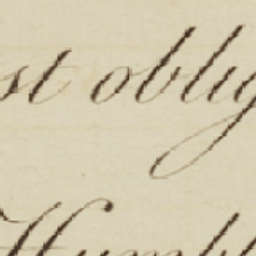 st oblig
Humbl